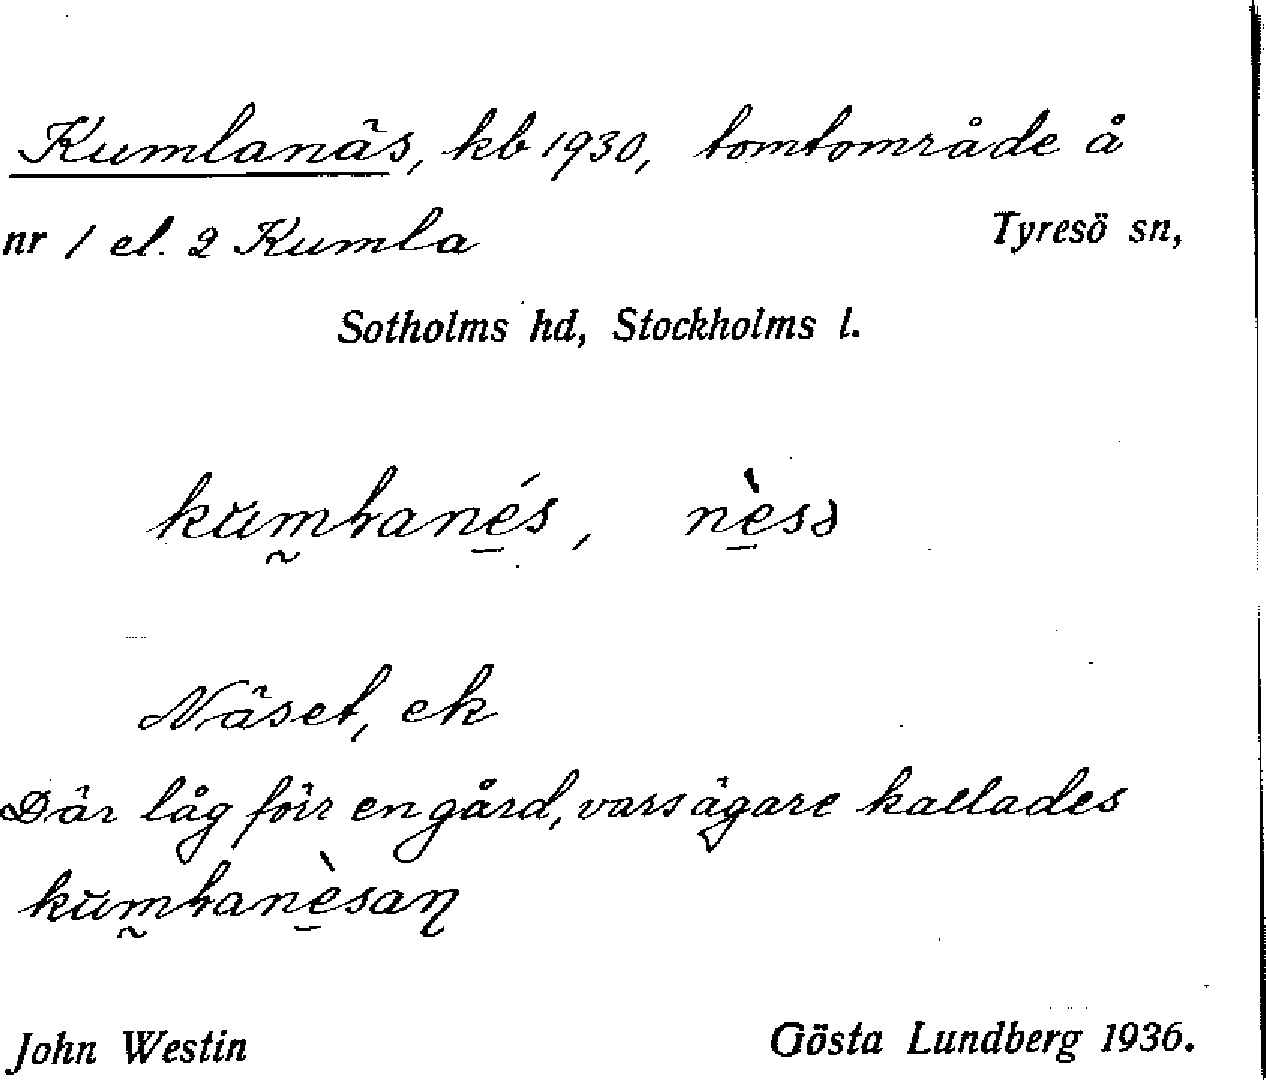 Kumlanäs, kb 1930, tomtområde å
nr 1 el. 2 Kumla Tyresö sn,
Sotholms hd, Stockholms l.
kŭm̰ɫané̱s, nè̱sə
Näset, ek
Där låg förr en gård, vars ägare kallades
kŭm̰ɫanè̱saŋ
John Westin Gösta Lundberg 1936.